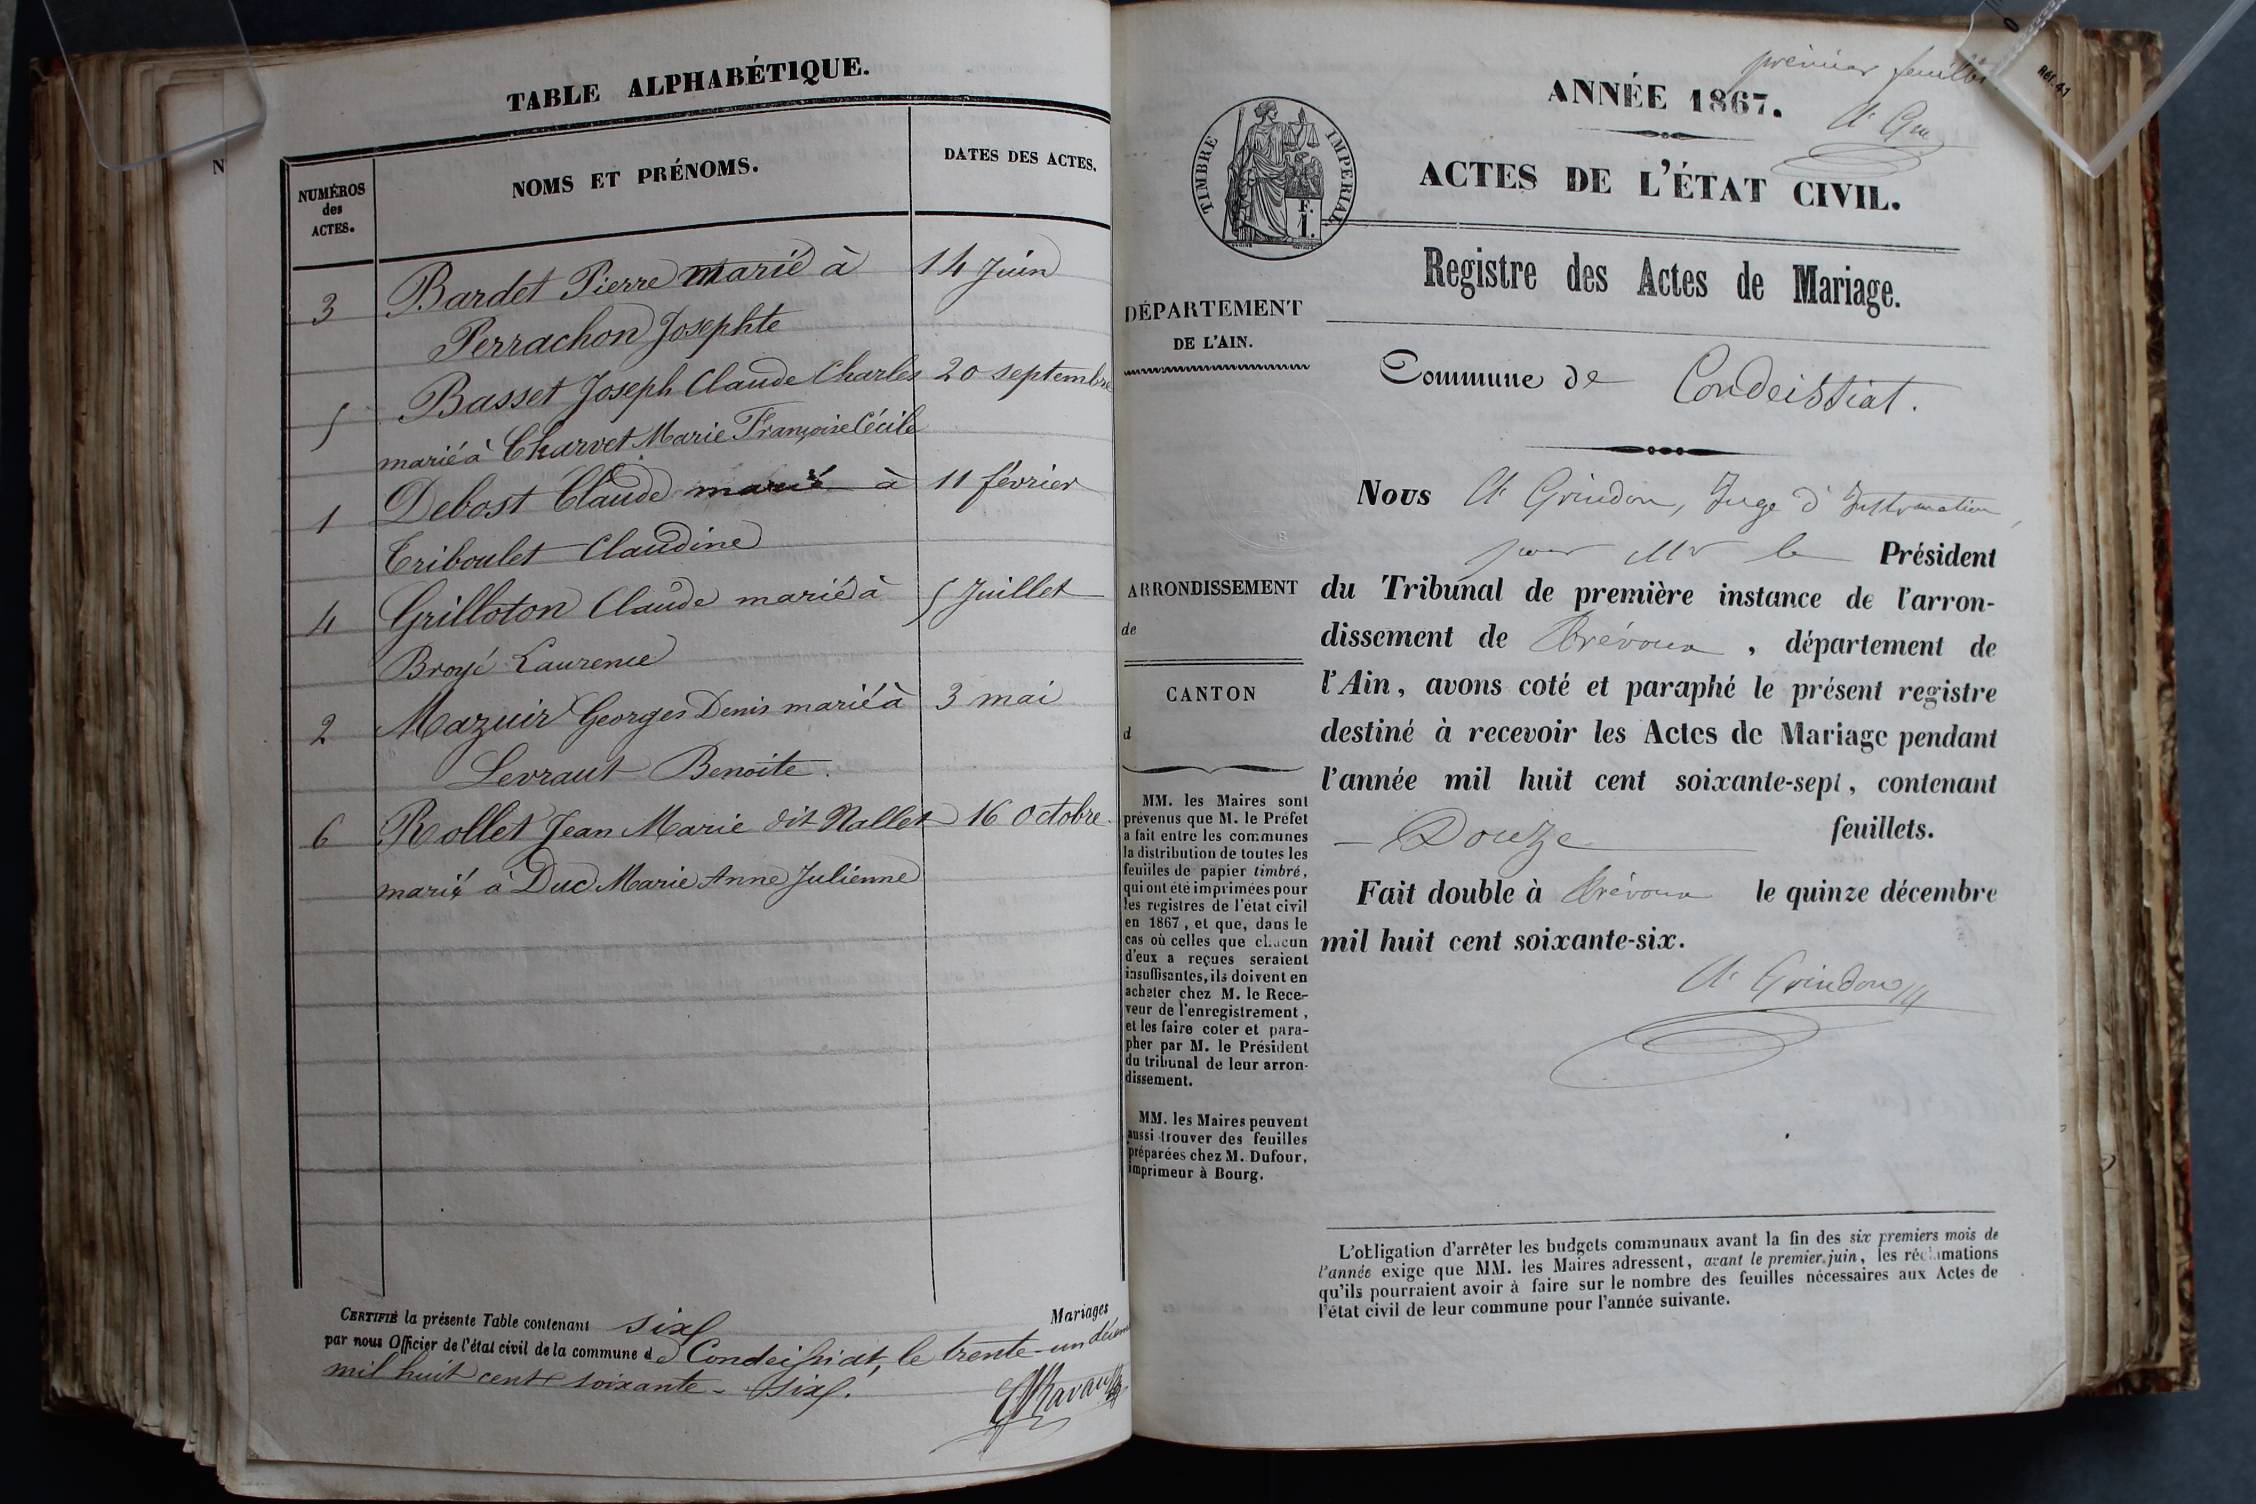 TABLE ALPHABÉTIQUE.
NUMÉROS des ACTES.
NOMS ET PRÉNOMS.
DATES DES ACTES.
3 Bardet Pierre marié à 14 Juin
Perrachon Josephte
5 Basset Joseph Claude Charles 20 septembre
marié à Charvet Marie Françoise Cécile
1 Debost Claude marié à 11 février
Triboulet Claudine
4 Grilloton Claude marié à 5 Juillet
Broyé Laurence
2 Mazuir Georges Denis marié à 3 mai
Levraut Benoite.
6 Rollet Jean Marie dit Nallet 16 octobre
marié à Duc Marie Anne Julienne
CERTIFIÉ la présente Table contenant six Mariages
par nous Officier de l'état civil de la commune de Condeissiat, le trente-un
mil huit cent soixante-six.
N
premier feuillet
ANNÉE 1867.
TIMBRE IMPERIAL
F.
1.
ACTES DE L'ÉTAT CIVIL.
Registre des Actes de Mariage.
DÉPARTEMENT
DE L'AIN.
Commune de Condeissiat.
ARRONDISSEMENT
de
CANTON
d
MM. les Maires sont
prévenus que M. le Préfet
a fait entre les communes
la distribution de toutes les
feuilles de papier timbré,
qui ont été imprimées pour
les registres de l'état civil
en 1867, et que, dans le
cas où celles que chacun
d'eux a reçues seraient
insuffisantes, ils doivent en
acheter chez M. le Rece-
veur de l'enregistrement,
et les faire coter et para-
pher par M. le Président
du tribunal de leur arron-
dissement.
MM. les Maires peuvent
aussi trouver des feuilles
préparées chez M. Dufour,
imprimeur à Bourg.
Nous Grindon, Juge d'Instruction,
pour Mr le Président
du Tribunal de première instance de l'arron-
dissement de Trévoux, département de
l'Ain, avons coté et paraphé le présent registre
destiné à recevoir les Actes de Mariage pendant
l'année mil huit cent soixante-sept, contenant
Douze feuillets.
Fait double à Trévoux le quinze décembre
mil huit cent soixante-six.
Grindon
L'obligation d'arrêter les budgets communaux avant la fin des six premiers mois de
l'année exige que MM. les Maires adressent, avant le premier juin, les réclamations
qu'ils pourraient avoir à faire sur le nombre des feuilles nécessaires aux Actes de
l'état civil de leur commune pour l'année suivante.
Réf. 41